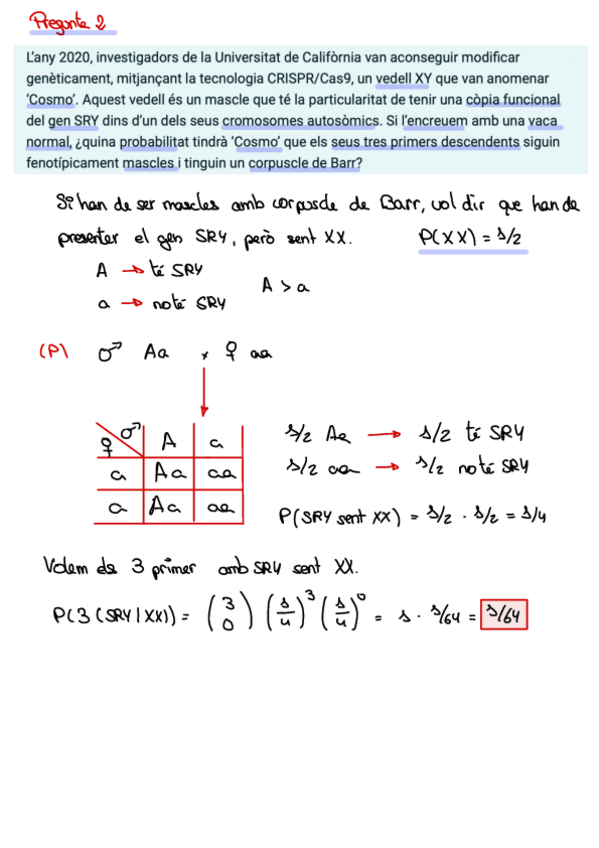 Pregunta 2
L'any 2020, investigadors de la Universitat de Califòrnia van aconseguir modificar
genèticament, mitjançant la tecnologia CRISPR/Cas9, un vedell XY que van anomenar
'Cosmo'. Aquest vedell és un mascle que té la particularitat de tenir una còpia funcional
del gen SRY dins d'un dels seus cromosomes autosòmics. Si l'encreuem amb una vaca
normal, ¿quina probabilitat tindrà 'Cosmo' que els seus tres primers descendents siguin
fenotípicament mascles i tinguin un corpuscle de Barr?
Si han de ser mascles amb corpuscle de Barr, vol dir que han de
presentar el gen SRY, però sent XX. P(XX) = 1/2
A → té SRY
A > a
a → no té SRY
(P) ♂ Aa × ♀ aa
♀ ♂ A a
a Aa aa
a Aa aa
1/2 Aa → 1/2 té SRY
1/2 aa → 1/2 no té SRY
P(SRY sent XX) = 1/2 · 1/2 = 1/4
Volem els 3 primer amb SRY sent XX.
P(3 (SRY | XX)) = (3 0) (1/4)^3 (1/4)^0 = 1 · 1/64 = 1/64